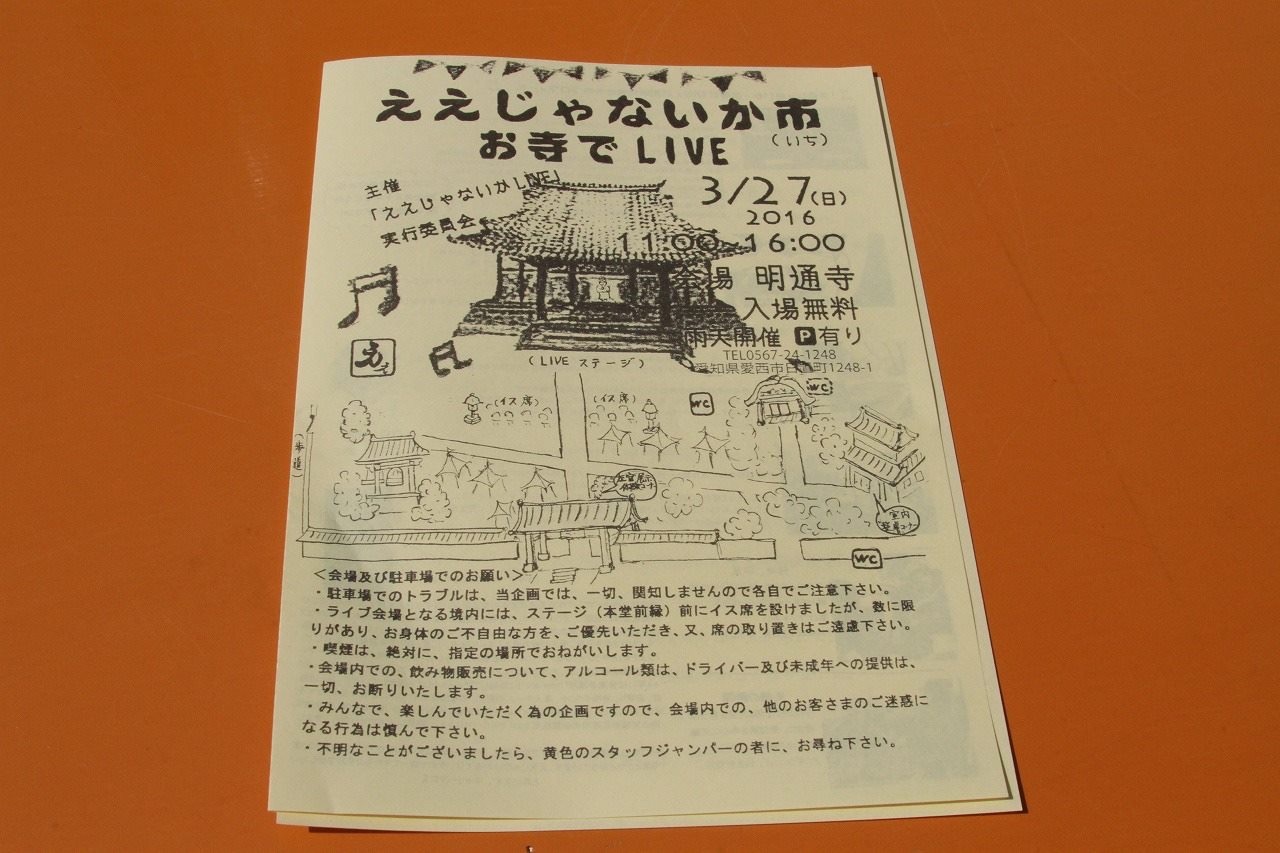 ええじゃないか市
(いち)
お寺でLIVE
主催
「ええじゃないかLIVE」
実行委員会
3/27(日)
2016
11:00 16:00
会場 明通寺
入場無料
雨天開催 P有り
TEL0567-24-1248
愛知県愛西市日置町1248-1
(LIVE ステージ)
(イス席)
(イス席)
WC
WC
(歩道)
室内
WC
<会場及び駐車場でのお願い>
・駐車場でのトラブルは、当企画では、一切、関知しませんので各自でご注意下さい。
・ライブ会場となる境内には、ステージ(本堂前縁)前にイス席を設けましたが、数に限
りがあり、お身体のご不自由な方を、ご優先いただき、又、席の取り置きはご遠慮下さい。
・喫煙は、絶対に、指定の場所でおねがいします。
・会場内での、飲み物販売について、アルコール類は、ドライバー及び未成年への提供は、
一切、お断りいたします。
・みんなで、楽しんでいただく為の企画ですので、会場内での、他のお客さまのご迷惑に
なる行為は慎んで下さい。
・不明なことがございましたら、黄色のスタッフジャンパーの者に、お尋ね下さい。